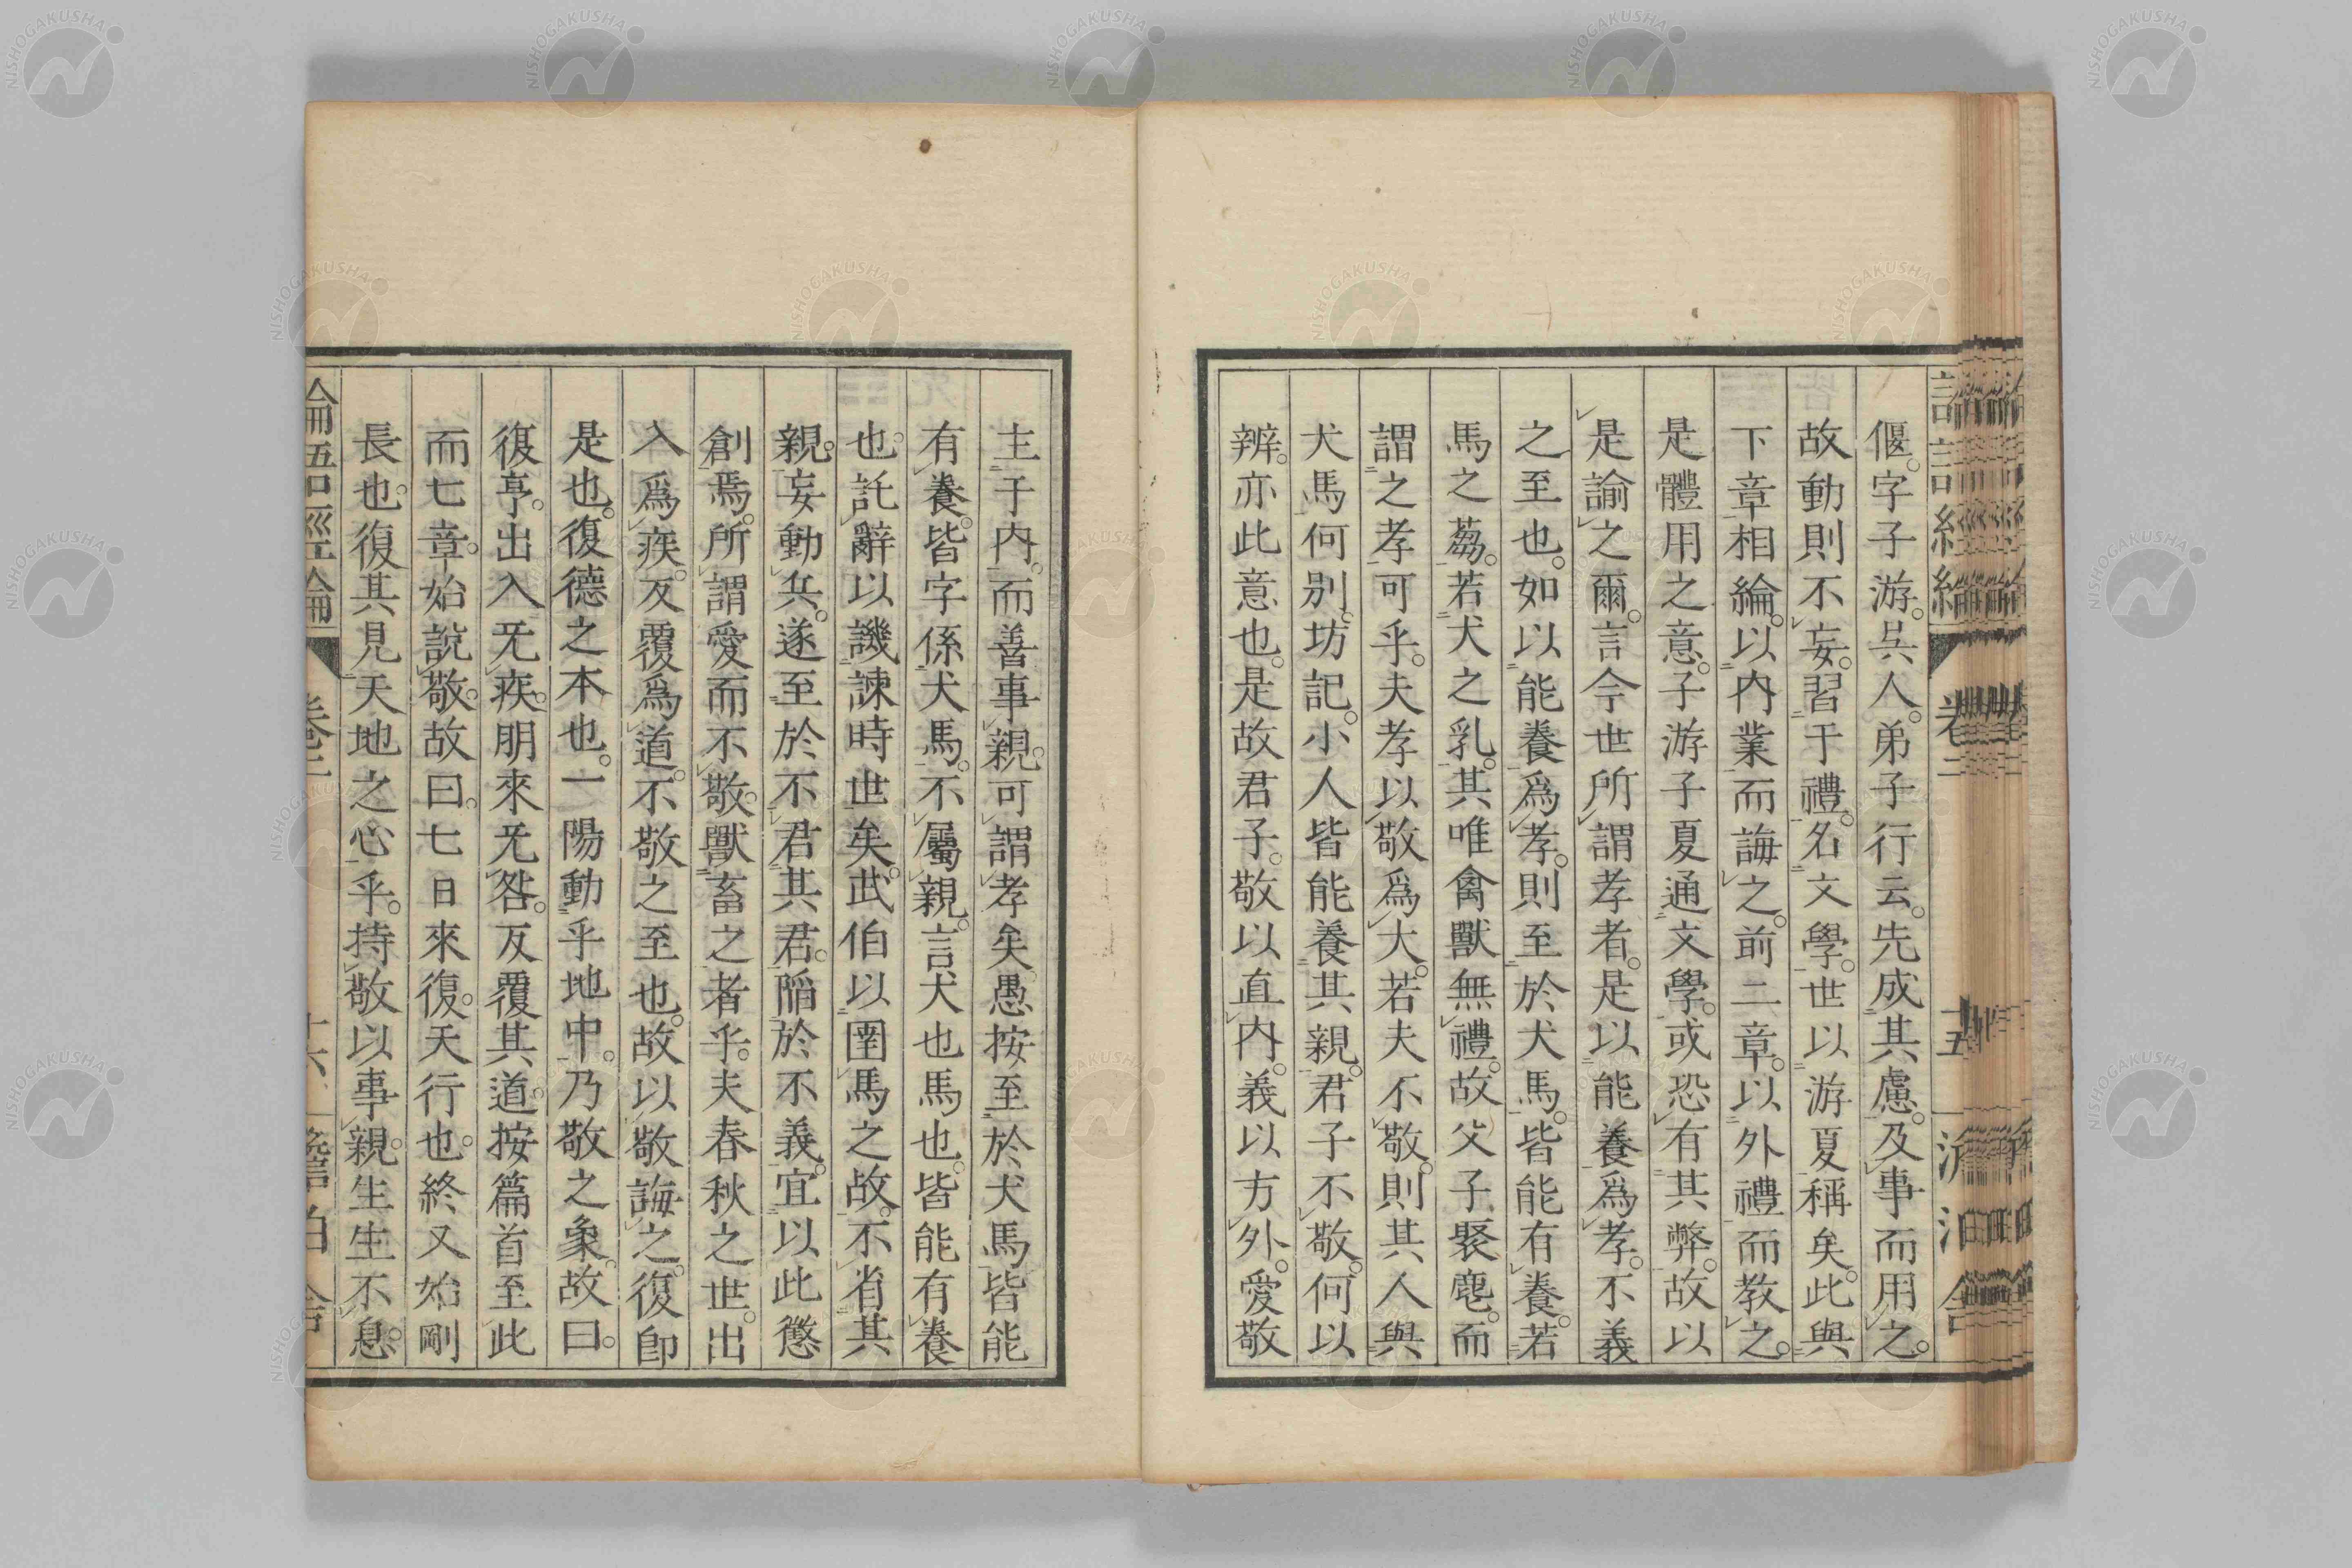 偃。字子游。呉人。弟子行云。先成其慮。及事而用之。
故動則不妄。習于禮。名文學。世以游夏稱矣。此與
下章相綸。以内業而誨之。前二章。以外禮而教之。
是體用之意。子游子夏通文學。或恐有其弊。故以
是諭之爾。言今世所謂孝者。是以能養爲孝。不義
之至也。如以能養爲孝。則至於犬馬。皆能有養。若
馬之蒭。若犬之乳。其唯禽獸無禮。故父子聚麀。而
謂之孝可乎。夫孝以敬爲大。若夫不敬。則其人與
犬馬何別。坊記。小人皆能養其親。君子不敬。何以
辨。亦此意也。是故君子。敬以直内。義以方外。愛敬
主于内。而善事親。可謂孝矣。愚按至於犬馬皆能
有養。皆字係犬馬。不屬親。言犬也馬也。皆能有養
也。託辭以譏諫時世矣。武伯以圉馬之故。不省其
親。妄動兵。遂至於不君其君。陷於不義。宜以此懲
創焉。所謂愛而不敬。獸畜之者乎。夫春秋之世。出
入爲疾。反覆爲道。不敬之至也。故以敬誨之。復卽
是也。復德之本也。一陽動乎地中。乃敬之象。故曰。
復亨。出入无疾。朋來无咎。反覆其道。按篇首至此
而七章。始説敬。故曰。七日來復。天行也。終又始。剛
長也。復其見天地之心乎。持敬以事親。生生不息。
論語經綸
卷二
十六
NISHOGAKUSHA